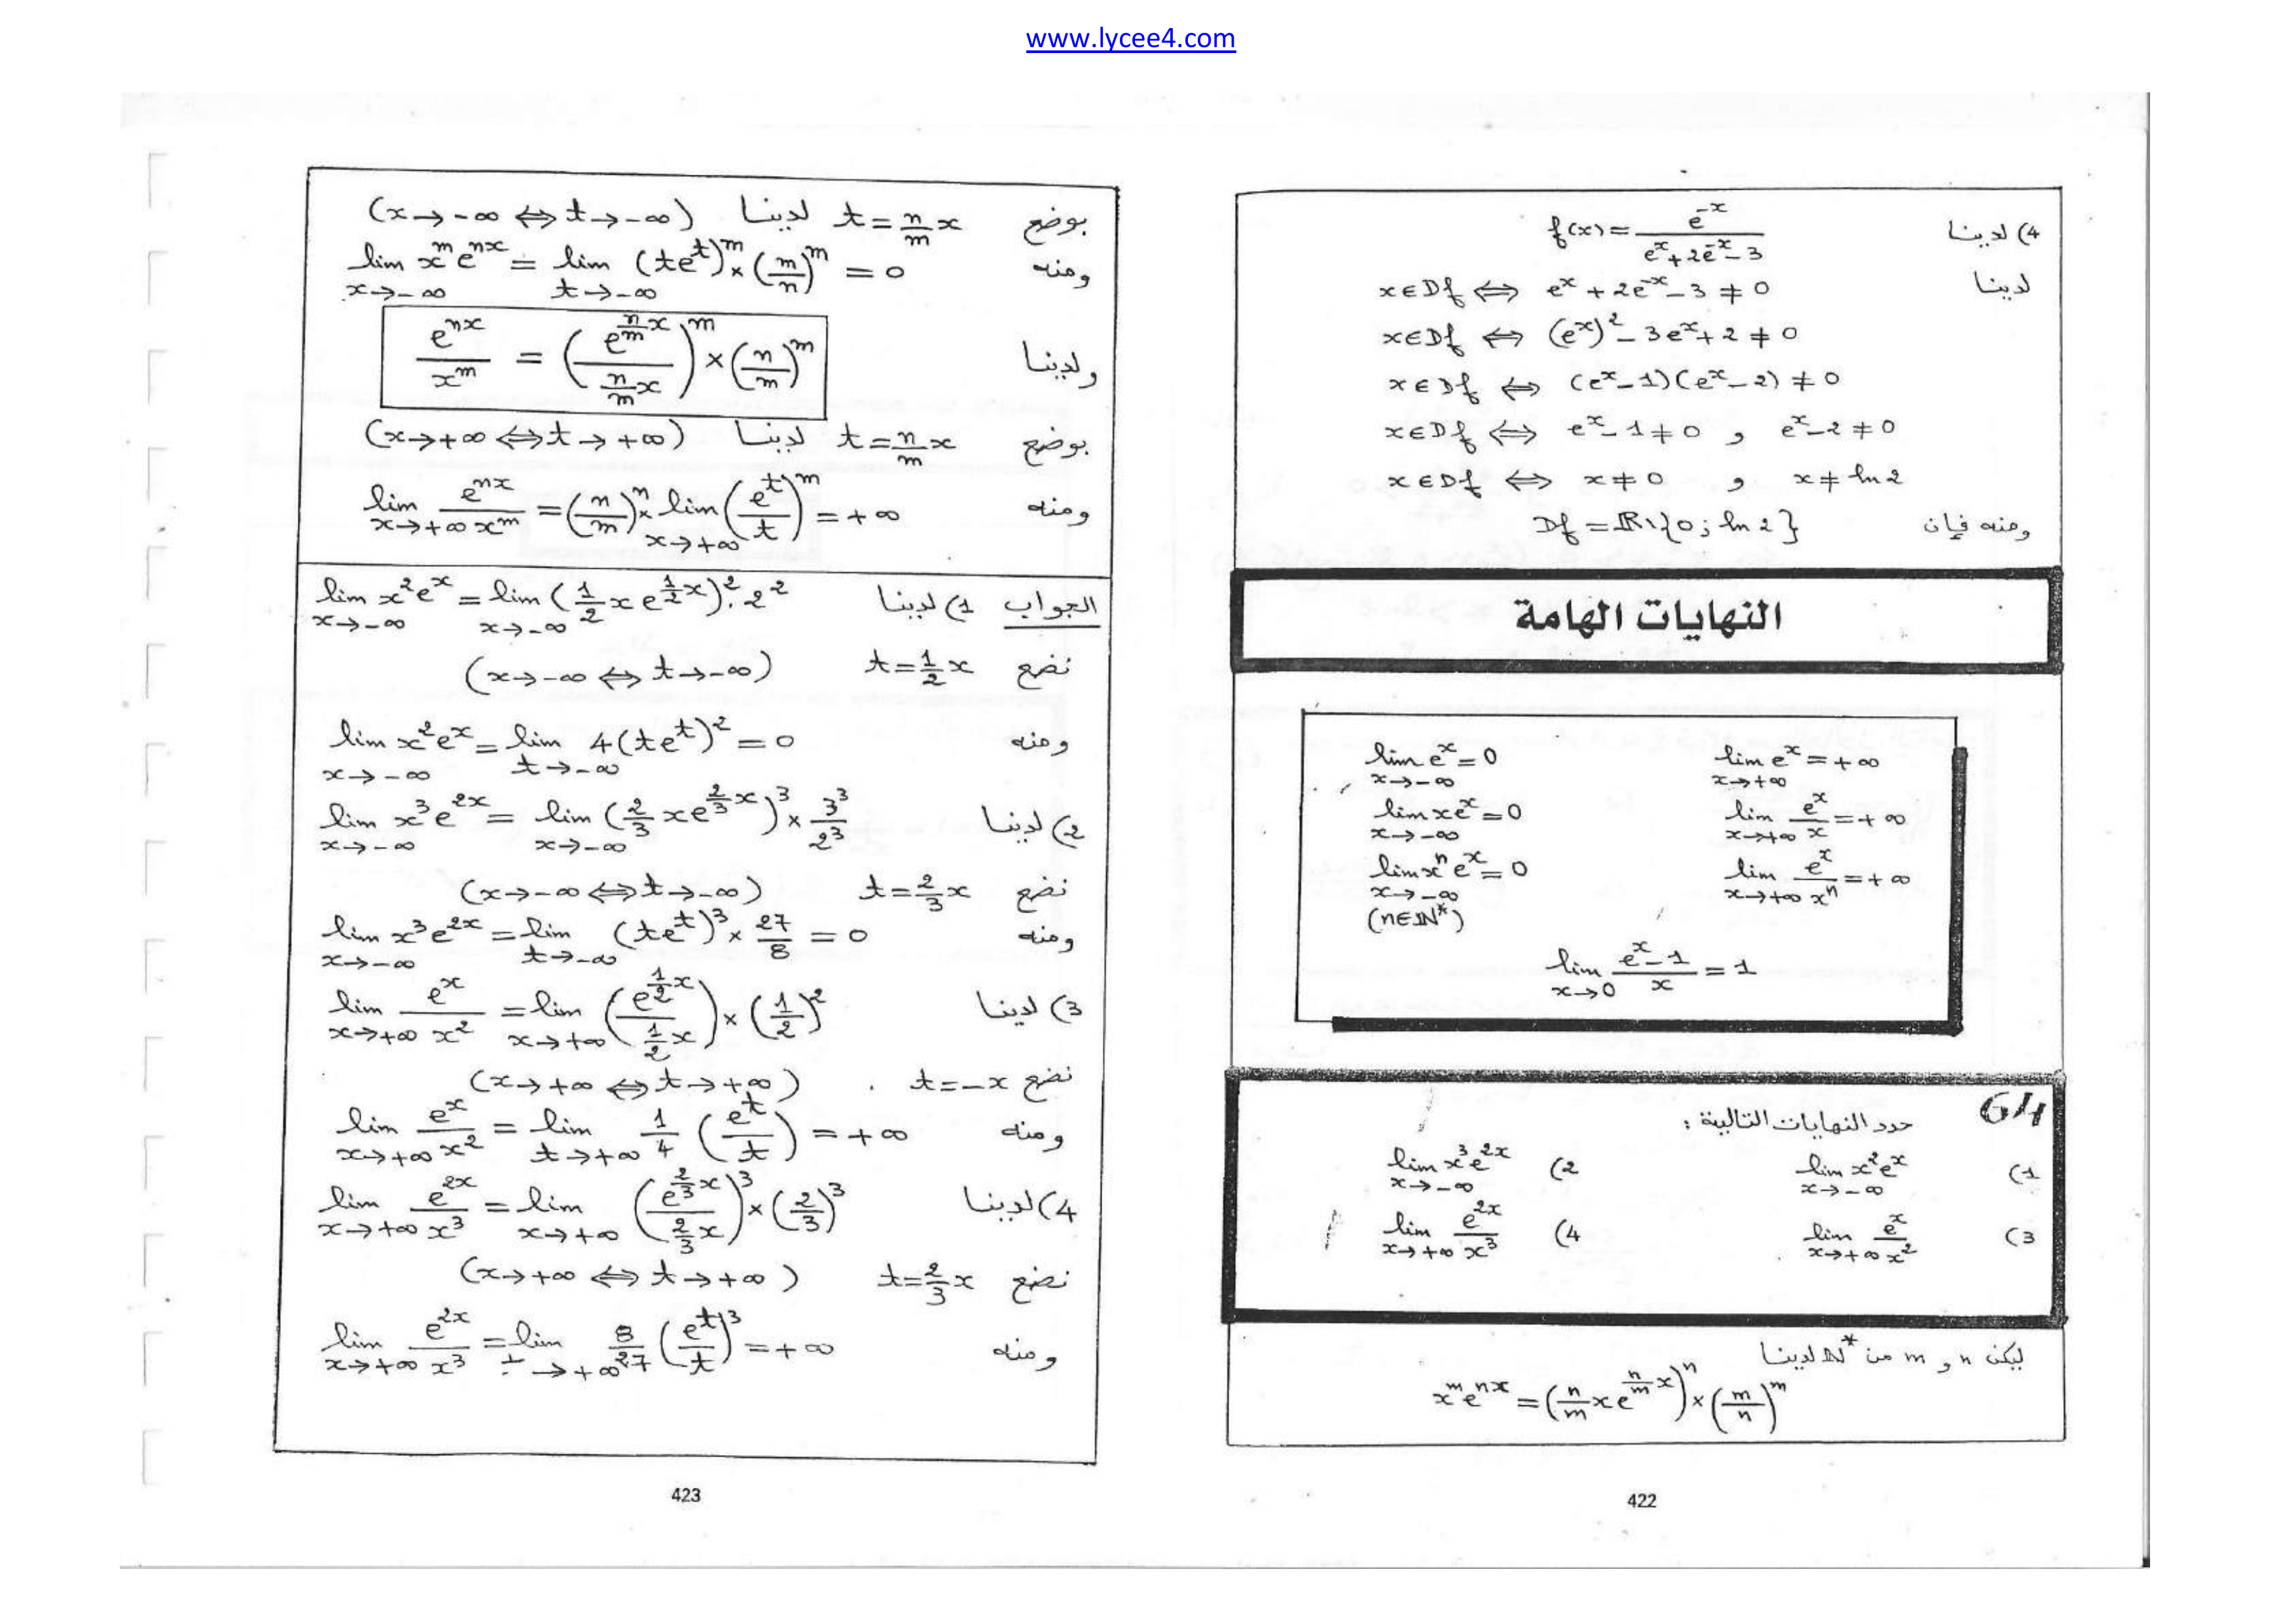 www.lycee4.com
4) لدينا f(x) = \frac{e^{-x}}{e^x + 2e^{-x} - 3}
لدينا x ∈ Df ⇔ e^x + 2e^{-x} - 3 ≠ 0
x ∈ Df ⇔ (e^x)^2 - 3e^x + 2 ≠ 0
x ∈ Df ⇔ (e^x - 1)(e^x - 2) ≠ 0
x ∈ Df ⇔ e^x - 1 ≠ 0 و e^x - 2 ≠ 0
x ∈ Df ⇔ x ≠ 0 و x ≠ ln 2
ومنه فإن Df = ℝ \ {0 ; ln 2}
النهايات الهامة
\lim_{x→-∞} e^x = 0 \lim_{x→+∞} e^x = +∞
\lim_{x→-∞} xe^x = 0 \lim_{x→+∞} \frac{e^x}{x} = +∞
\lim_{x→-∞} x^n e^x = 0 \lim_{x→+∞} \frac{e^x}{x^n} = +∞
(n ∈ ℕ*)
\lim_{x→0} \frac{e^x - 1}{x} = 1
614
حدد النهايات التالية :
1) \lim_{x→-∞} x^2 e^x 2) \lim_{x→-∞} x^3 e^{2x}
3) \lim_{x→+∞} \frac{e^x}{x^2} 4) \lim_{x→+∞} \frac{e^{2x}}{x^3}
ليكن n و m من ℕ* لدينا
x^m e^{nx} = (\frac{n}{m} x e^{\frac{n}{m}x})^n × (\frac{m}{n})^m
422
بوضع t = \frac{n}{m} x لدينا (x → -∞ ⇔ t → -∞)
ومنه \lim_{x→-∞} x^m e^{nx} = \lim_{t→-∞} (te^t)^m × (\frac{m}{n})^m = 0
ولدينا \frac{e^{nx}}{x^m} = (\frac{e^{\frac{n}{m}x}}{\frac{n}{m}x})^m × (\frac{n}{m})^m
بوضع t = \frac{n}{m} x لدينا (x → +∞ ⇔ t → +∞)
ومنه \lim_{x→+∞} \frac{e^{nx}}{x^m} = (\frac{n}{m})^n × \lim_{x→+∞} (\frac{e^t}{t})^m = +∞
الجواب 1) لدينا \lim_{x→-∞} x^2 e^x = \lim_{x→-∞} (\frac{1}{2} x e^{\frac{1}{2}x})^2 . 2^2
نضع t = \frac{1}{2} x (x → -∞ ⇔ t → -∞)
ومنه \lim_{x→-∞} x^2 e^x = \lim_{t→-∞} 4(te^t)^2 = 0
2) لدينا \lim_{x→-∞} x^3 e^{2x} = \lim_{x→-∞} (\frac{2}{3} x e^{\frac{2}{3}x})^3 × \frac{3^3}{2^3}
نضع t = \frac{2}{3} x (x → -∞ ⇔ t → -∞)
ومنه \lim_{x→-∞} x^3 e^{2x} = \lim_{t→-∞} (te^t)^3 × \frac{27}{8} = 0
3) لدينا \lim_{x→+∞} \frac{e^x}{x^2} = \lim_{x→+∞} (\frac{e^{\frac{1}{2}x}}{\frac{1}{2}x}) × (\frac{1}{2})^2
نضع t = -x (x → +∞ ⇔ t → +∞)
ومنه \lim_{x→+∞} \frac{e^x}{x^2} = \lim_{t→+∞} \frac{1}{4} (\frac{e^t}{t}) = +∞
4) لدينا \lim_{x→+∞} \frac{e^{2x}}{x^3} = \lim_{x→+∞} (\frac{e^{\frac{2}{3}x}}{\frac{2}{3}x})^3 × (\frac{2}{3})^3
نضع t = \frac{2}{3} x (x → +∞ ⇔ t → +∞)
ومنه \lim_{x→+∞} \frac{e^{2x}}{x^3} = \lim_{t→+∞} \frac{8}{27} (\frac{e^t}{t})^3 = +∞
423